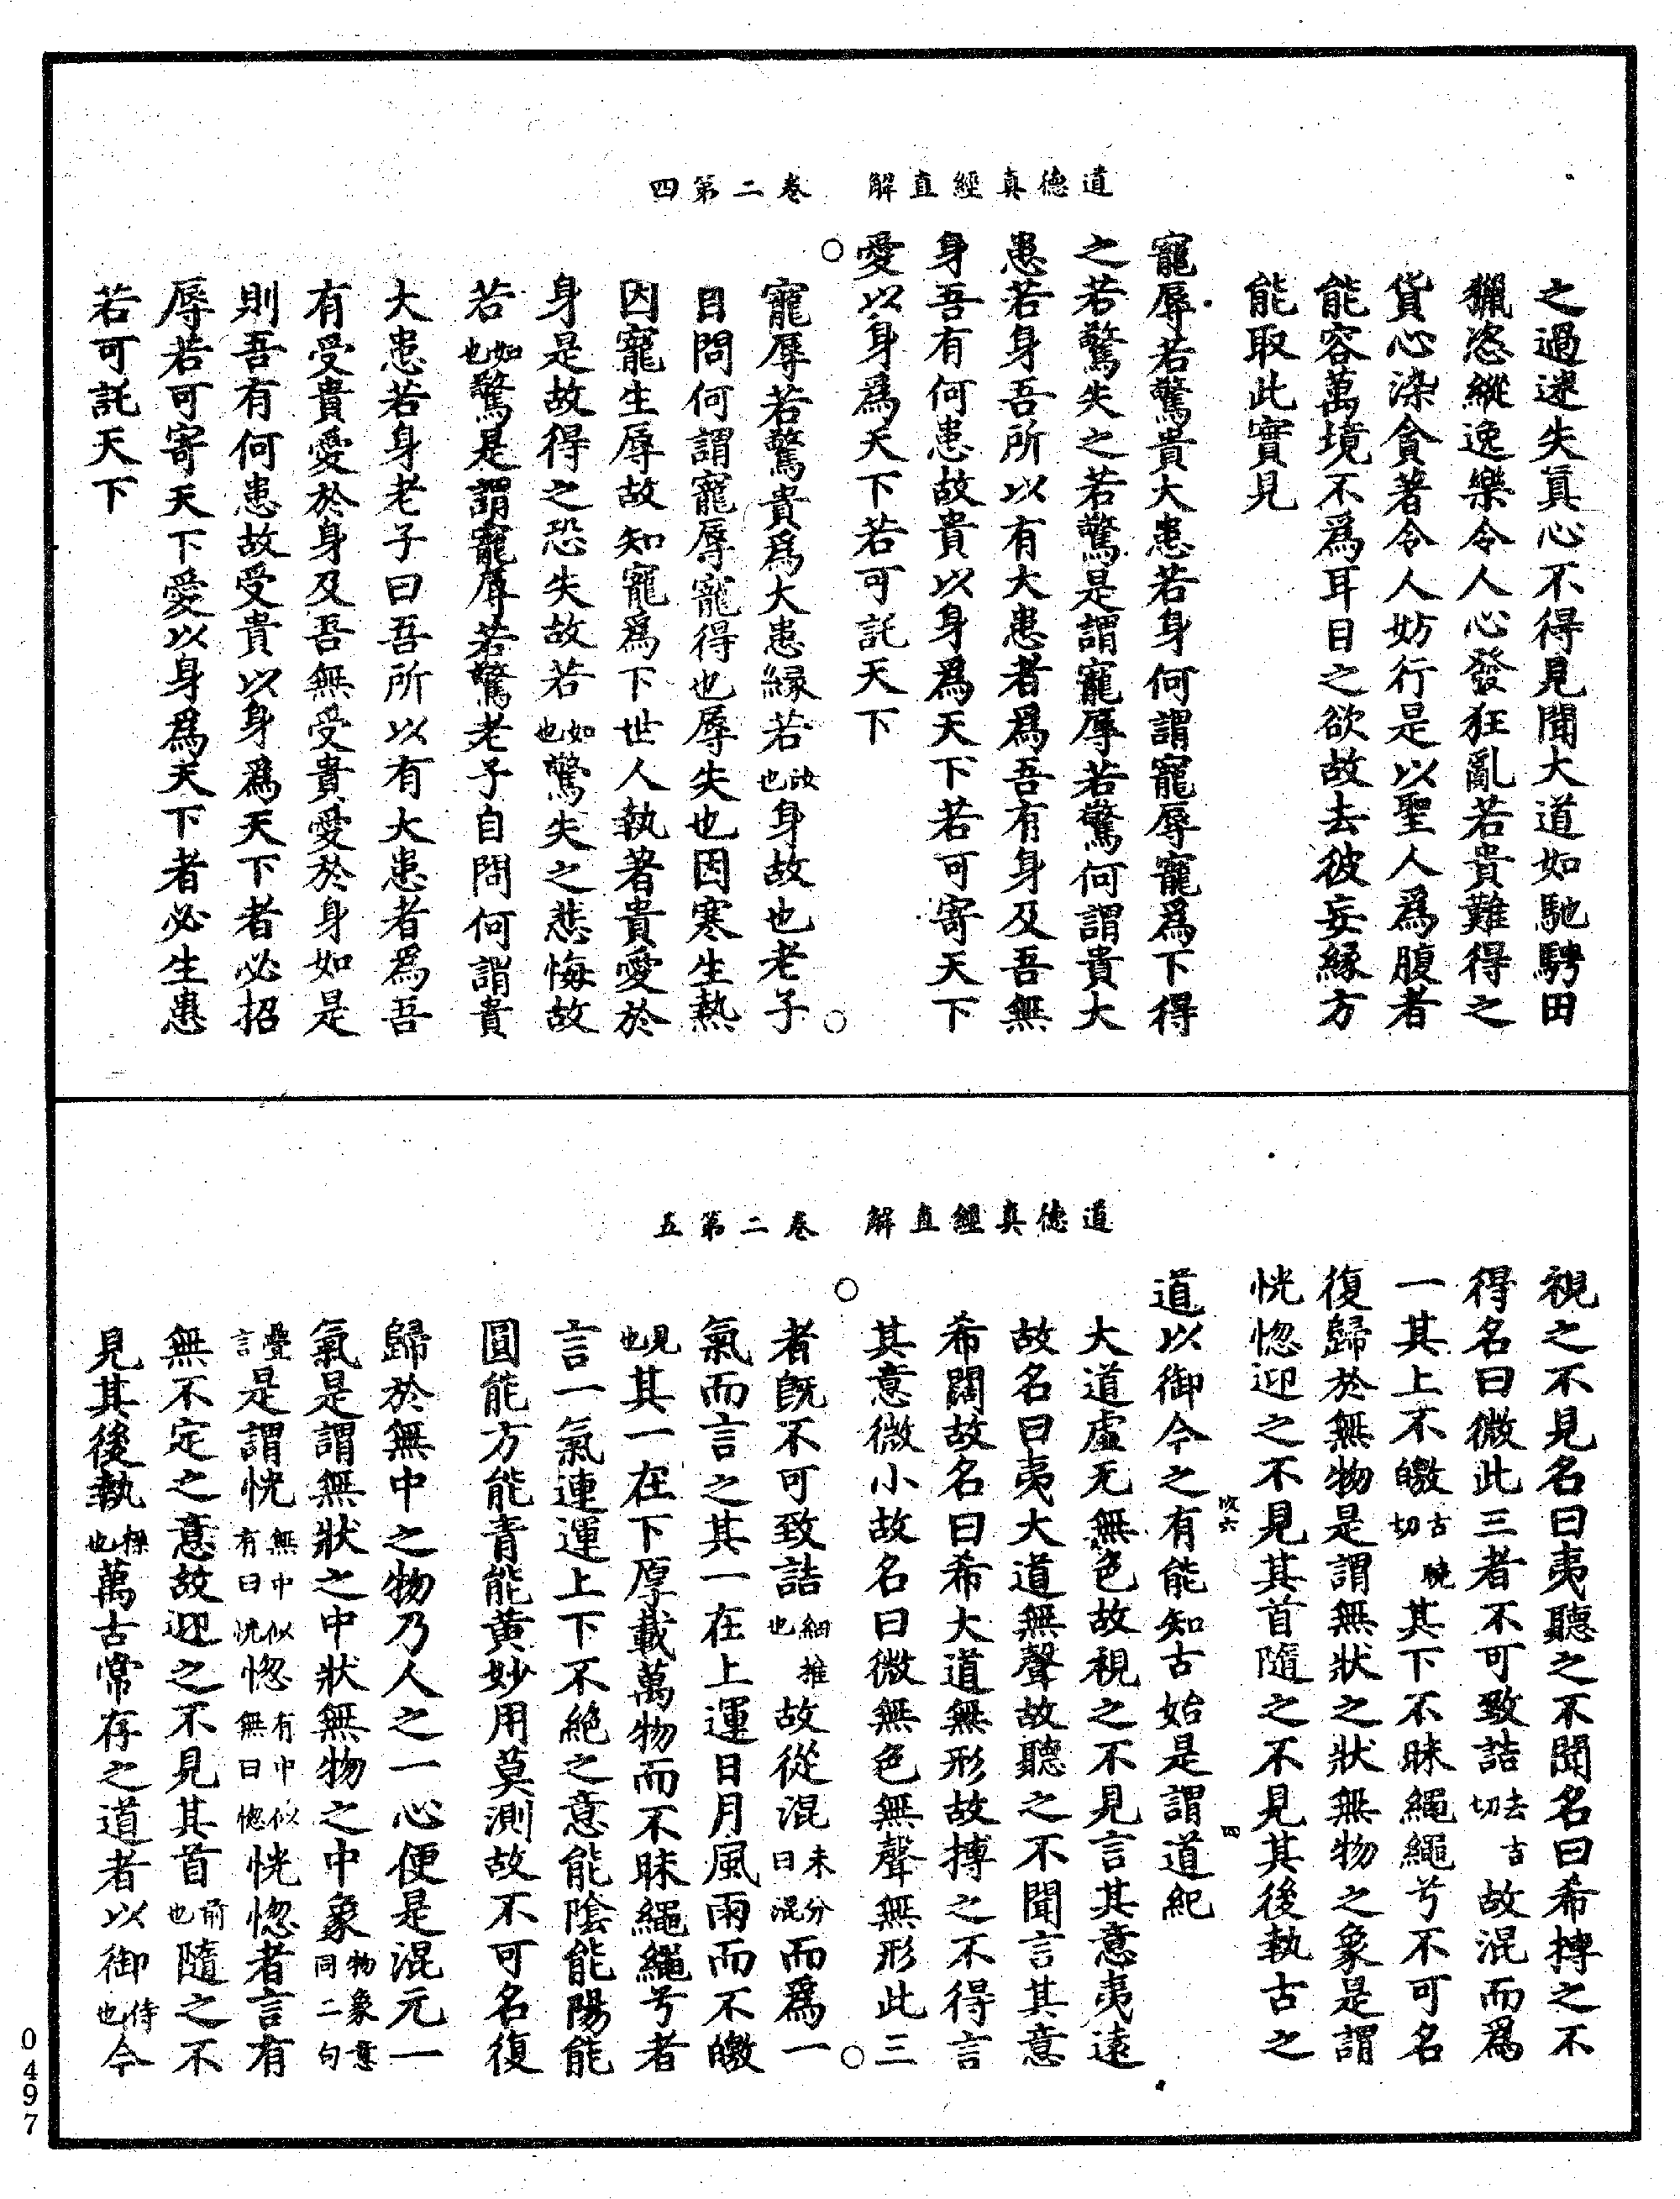 道德真經直解　卷二第四
之過迷失真心不得見聞大道如馳騁田
獵恣縱逸樂令人心發狂亂若貴難得之
貨心染貪著令人妨行是以聖人爲腹者
能容萬境不爲耳目之欲故去彼妄緣方
能取此實見
寵辱若驚貴大患若身何謂寵辱寵爲下得
之若驚失之若驚是謂寵辱若驚何謂貴大
患若身吾所以有大患者爲吾有身及吾無
身吾有何患故貴以身爲天下若可寄天下
愛以身爲天下若可託天下
寵辱若驚貴爲大患緣若汝也身故也老子
自問何謂寵辱寵得也辱失也因寒生熱
因寵生辱故知寵爲下世人執著貴愛於
身是故得之恐失故若如也驚失之悲悔故
若如也驚是謂寵辱若驚老子自問何謂貴
大患若身老子曰吾所以有大患者爲吾
有受貴愛於身及吾無受貴愛於身如是
則吾有何患故受貴以身爲天下者必招
辱若可寄天下愛以身爲天下者必生患
若可託天下
道德真經直解　卷二第五
視之不見名曰夷聽之不聞名曰希摶之不
得名曰微此三者不可致詰去吉切故混而爲
一其上不皦古曉切其下不昧繩繩兮不可名
復歸於無物是謂無狀之狀無物之象是謂
恍惚迎之不見其首隨之不見其後執古之
改六　四
道以御今之有能知古始是謂道紀
大道虛无無色故視之不見言其意夷遠
故名曰夷大道無聲故聽之不聞言其意
希闊故名曰希大道無形故摶之不得言
其意微小故名曰微無色無聲無形此三
者既不可致詰細推也故從混未分曰混而爲一
氣而言之其一在上運日月風雨而不皦
見也其一在下厚載萬物而不昧繩繩兮者
言一氣連運上下不絕之意能陰能陽能
圓能方能青能黃妙用莫測故不可名復
歸於無中之物乃人之一心便是混元一
氣是謂無狀之中狀無物之中象物象意同二句
疊言是謂恍無中似有曰恍惚有中似無曰惚恍惚者言有
無不定之意故迎之不見其首前也隨之不
見其後執操也萬古常存之道者以御侍也今
0497